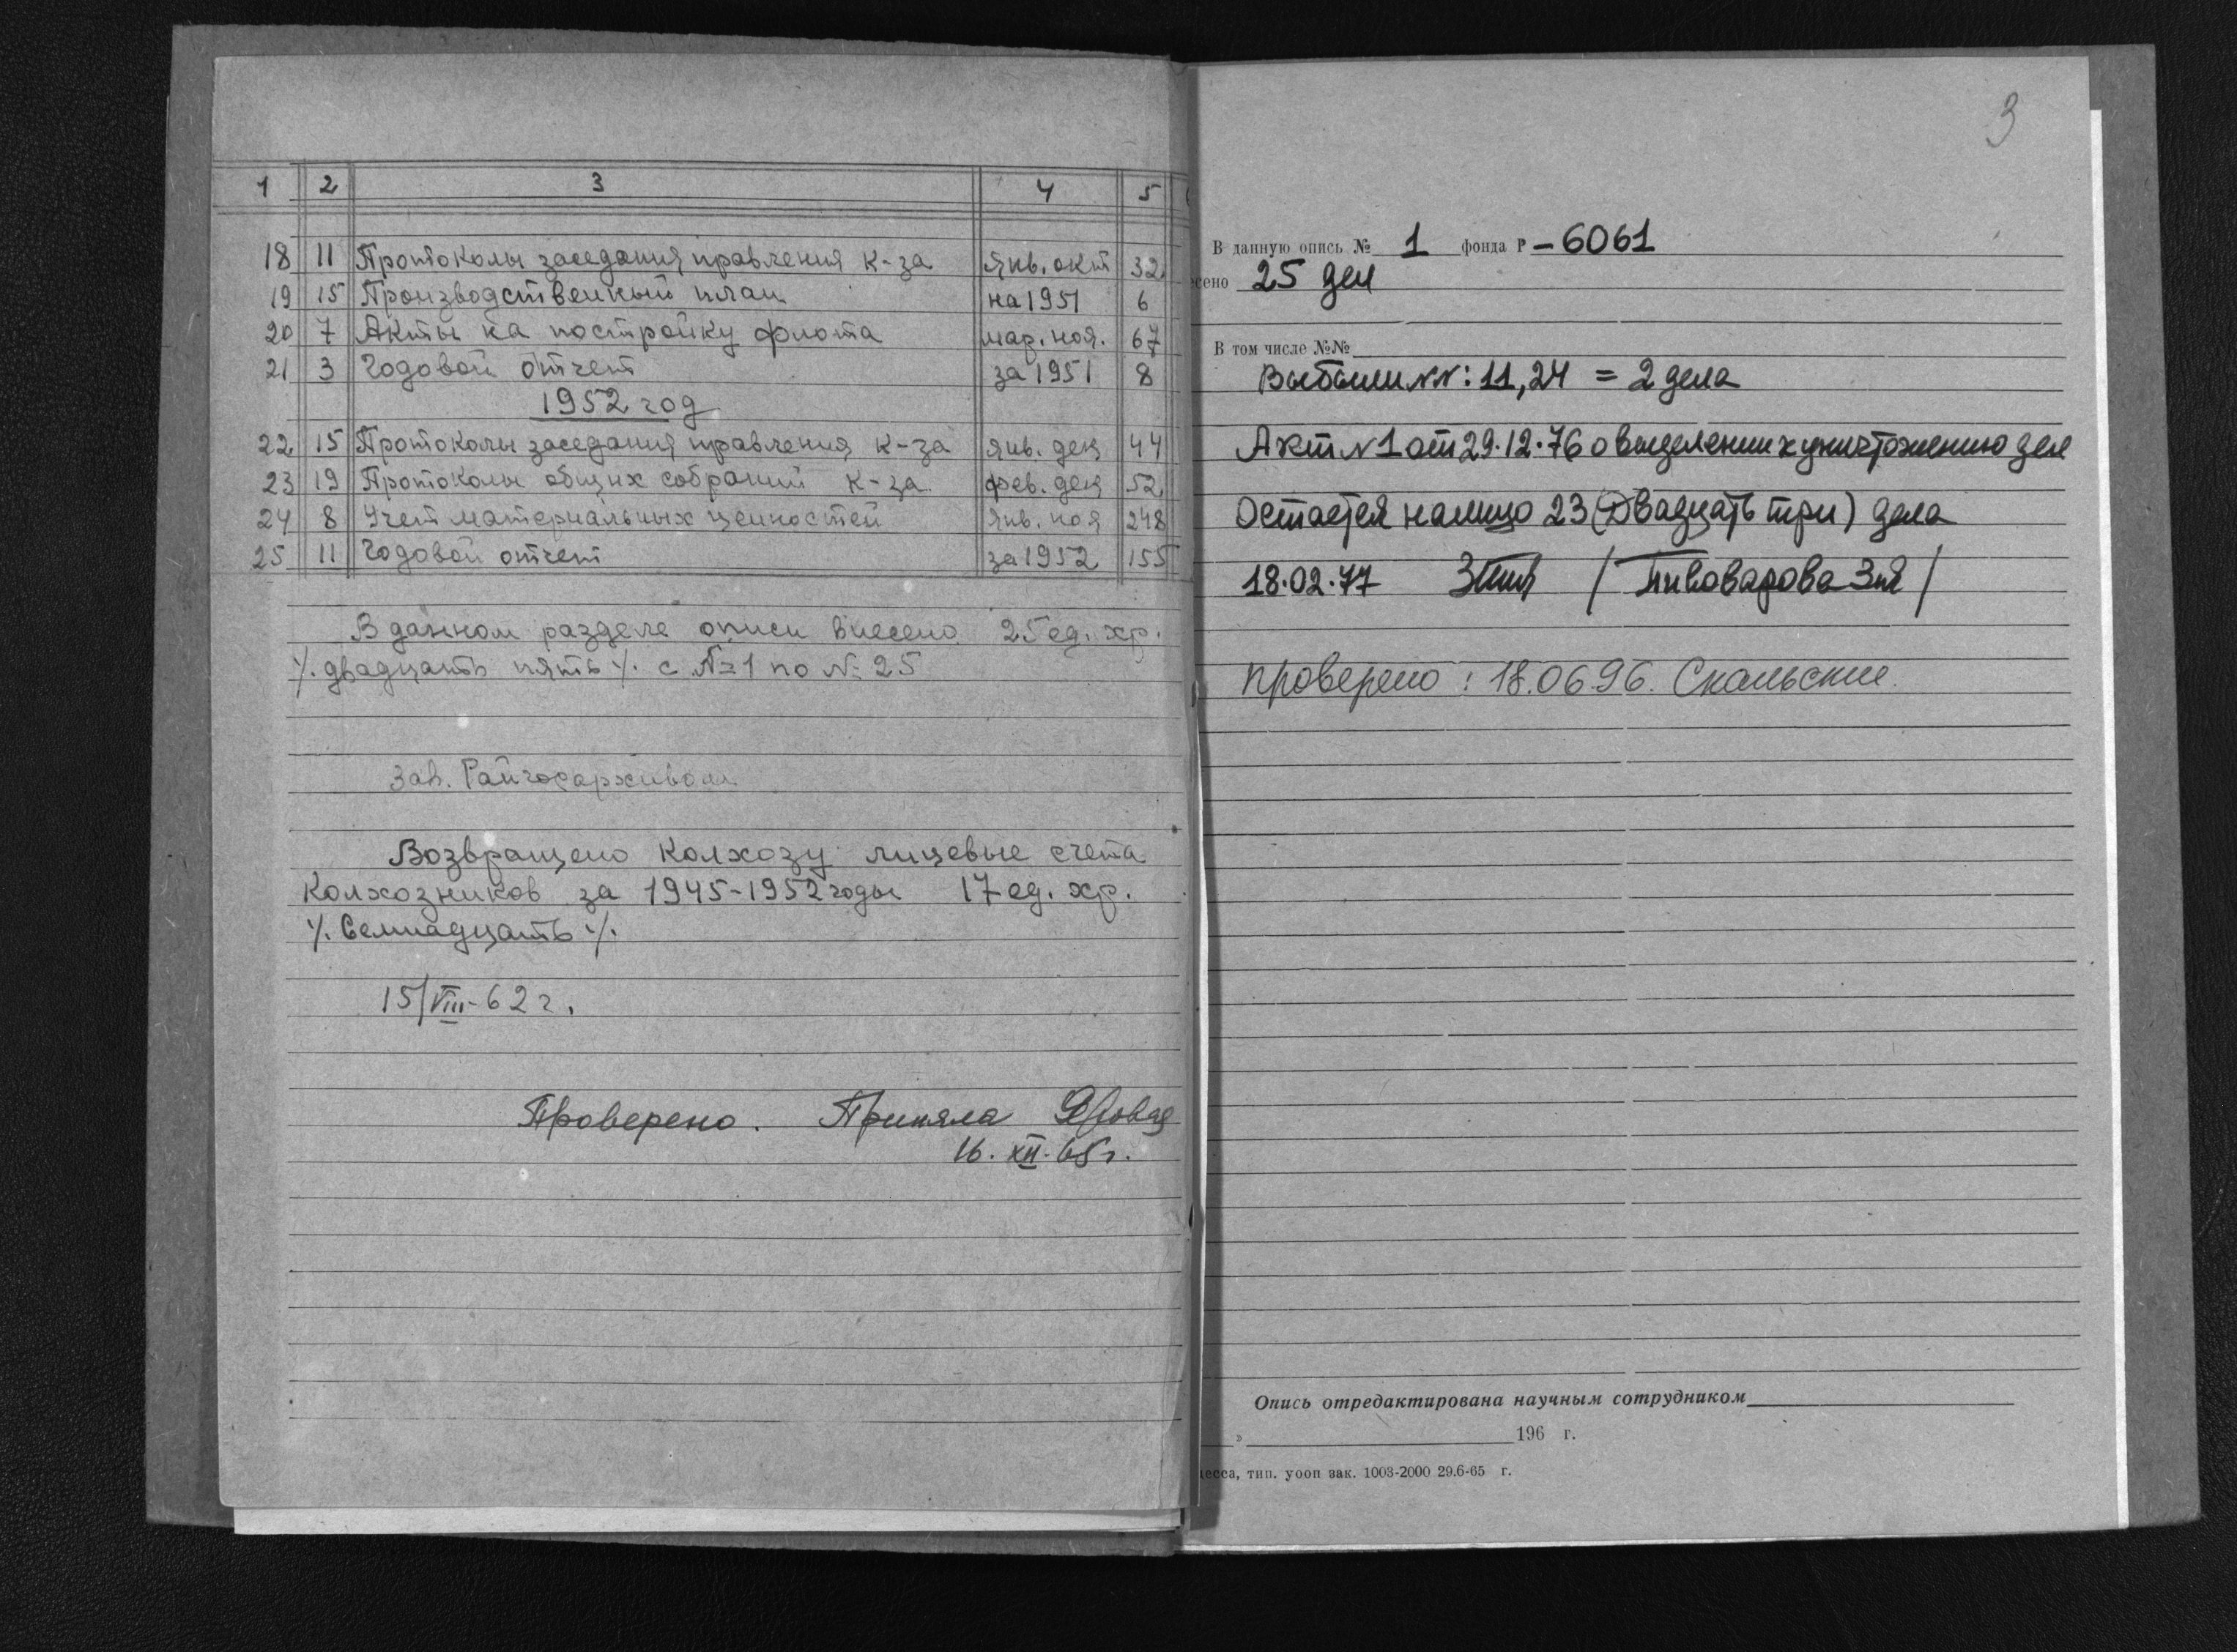 1 2 3 4 5
18 11 Протоколы заседания правления к-за янв. окт 32
19 15 Производственный план на 1951 6
20 7 Акты на постройку флота мар. ноя. 67
21 3 Годовой отчет за 1951 8
1952 год
22 15 Протоколы заседания правления к-за янв. дец 44
23 19 Протоколы общих собраний к-за фев. дец 52
24 8 Учет материальных ценностей янв. ноя 248
25 11 Годовой отчет за 1952 155
В данном разделе описи внесено 25 ед. хр.
٪ двадцать пять ٪ с №1 по № 25
Зав. Райгосархивом
Возвращено колхозу лицевые счета
колхозников за 1945-1952 годы 17 ед. хр.
٪ Семнадцать ٪
15/VIII-62 г.
Проверено. Приняла
16. XII. 65 г.
3
В данную опись № 1 фонда Р-6061
сено 25 дел
В том числе №№
Выбыли NN: 11, 24 = 2 дела
Акт N1 от 29.12.76 о выделении к уничтожению дел
Остается налицо 23 (Двадцать три) дела
18.02.77 / Пивоварова ЗИ /
проверено: 18.06.96.
Опись отредактирована научным сотрудником
» 196 г.
есса, тип. уооп зак. 1003-2000 29.6-65 г.